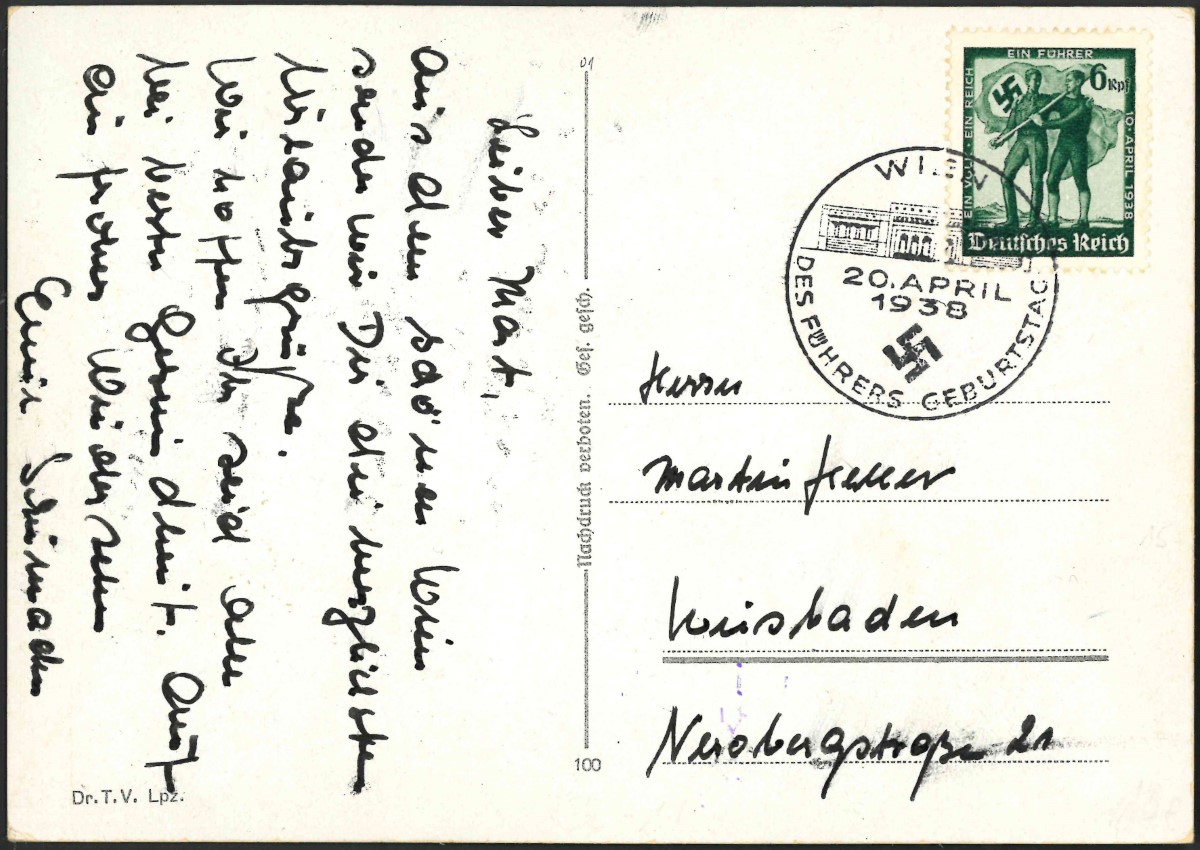 Lieber Mart,
aus dem schönen Wien
senden wir Dir die herzlichsten
Urlaubsgrüße.
Wir hoffen Ihr seid alle
bei bester Gesundheit. Auf
ein frohes Wiedersehen
Dr. T. V. Lpz.
01
Nachdruck verboten. Ges. gesch.
100
EIN VOLK · EIN REICH
EIN FÜHRER
10 · APRIL 1938
6 Rpf
Deutsches Reich
WIEN
20. APRIL
1938
DES FÜHRERS GEBURTSTAG
Herrn
Martin Heller
Wiesbaden
Nerobergstraße 21
15